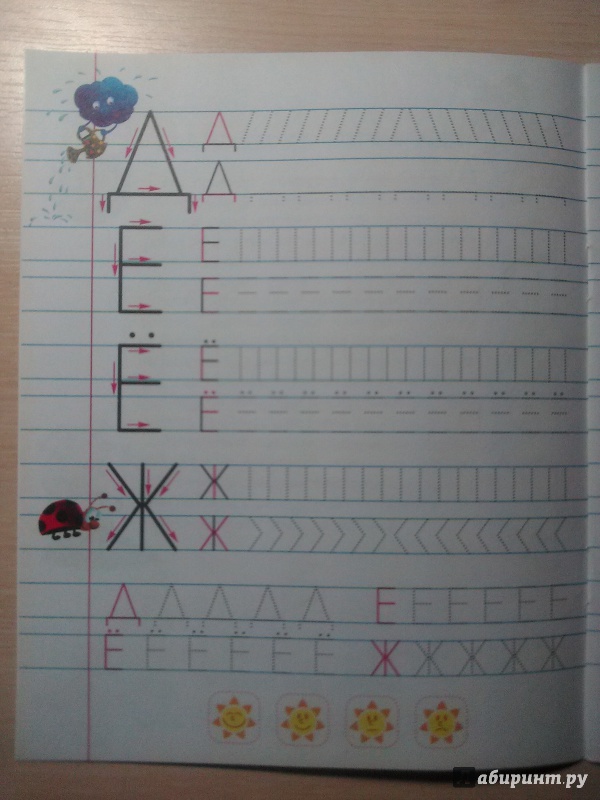 Д Д
Д
Е Е
Е
Ё Ё
Ё
Ж Ж
Ж
Д Д Д Д Д Е Е Е Е Е Е
Ё Ё Ё Ё Ё Ё Ж Ж Ж Ж Ж
Лабиринт.ру